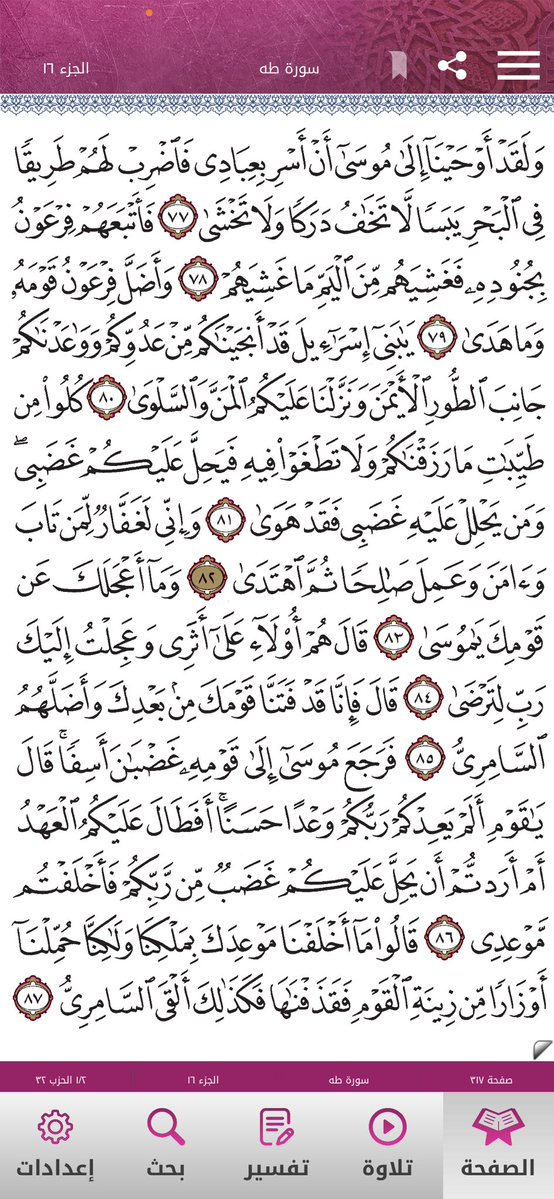 الجزء ١٦
سورة طه
وَلَقَدْ أَوْحَيْنَآ إِلَىٰ مُوسَىٰٓ أَنْ أَسْرِ بِعِبَادِى فَٱضْرِبْ لَهُمْ طَرِيقًا
فِى ٱلْبَحْرِ يَبَسًا لَّا تَخَٰفُ دَرَكًا وَلَا تَخْشَىٰ ٧٧ فَأَتْبَعَهُمْ فِرْعَوْنُ
بِجُنُودِهِۦ فَغَشِيَهُم مِّنَ ٱلْيَمِّ مَا غَشِيَهُمْ ٧٨ وَأَضَلَّ فِرْعَوْنُ قَوْمَهُۥ
وَمَا هَدَىٰ ٧٩ يَٰبَنِىٓ إِسْرَٰٓءِيلَ قَدْ أَنجَيْنَٰكُم مِّنْ عَدُوِّكُمْ وَوَٰعَدْنَٰكُمْ
جَانِبَ ٱلطُّورِ ٱلْأَيْمَنَ وَنَزَّلْنَا عَلَيْكُمُ ٱلْمَنَّ وَٱلسَّلْوَىٰ ٨٠ كُلُوا۟ مِن
طَيِّبَٰتِ مَا رَزَقْنَٰكُمْ وَلَا تَطْغَوْا۟ فِيهِ فَيَحِلَّ عَلَيْكُمْ غَضَبِى ۖ
وَمَن يَحْلِلْ عَلَيْهِ غَضَبِى فَقَدْ هَوَىٰ ٨١ وَإِنِّى لَغَفَّارٌ لِّمَن تَابَ
وَءَامَنَ وَعَمِلَ صَٰلِحًا ثُمَّ ٱهْتَدَىٰ ٨٢ وَمَآ أَعْجَلَكَ عَن
قَوْمِكَ يَٰمُوسَىٰ ٨٣ قَالَ هُمْ أُو۟لَآءِ عَلَىٰٓ أَثَرِى وَعَجِلْتُ إِلَيْكَ
رَبِّ لِتَرْضَىٰ ٨٤ قَالَ فَإِنَّا قَدْ فَتَنَّا قَوْمَكَ مِنۢ بَعْدِكَ وَأَضَلَّهُمُ
ٱلسَّامِرِىُّ ٨٥ فَرَجَعَ مُوسَىٰٓ إِلَىٰ قَوْمِهِۦ غَضْبَٰنَ أَسِفًا ۚ قَالَ
يَٰقَوْمِ أَلَمْ يَعِدْكُمْ رَبُّكُمْ وَعْدًا حَسَنًا ۚ أَفَطَالَ عَلَيْكُمُ ٱلْعَهْدُ
أَمْ أَرَدتُّمْ أَن يَحِلَّ عَلَيْكُمْ غَضَبٌ مِّن رَّبِّكُمْ فَأَخْلَفْتُم
مَّوْعِدِى ٨٦ قَالُوا۟ مَآ أَخْلَفْنَا مَوْعِدَكَ بِمَلْكِنَا وَلَٰكِنَّا حُمِّلْنَآ
أَوْزَارًا مِّن زِينَةِ ٱلْقَوْمِ فَقَذَفْنَٰهَا فَكَذَٰلِكَ أَلْقَى ٱلسَّامِرِىُّ ٨٧
صفحة ٣١٧ سورة طه الجزء ١٦ ١/٢ الحزب ٣٢
الصفحة تلاوة تفسير بحث إعدادات